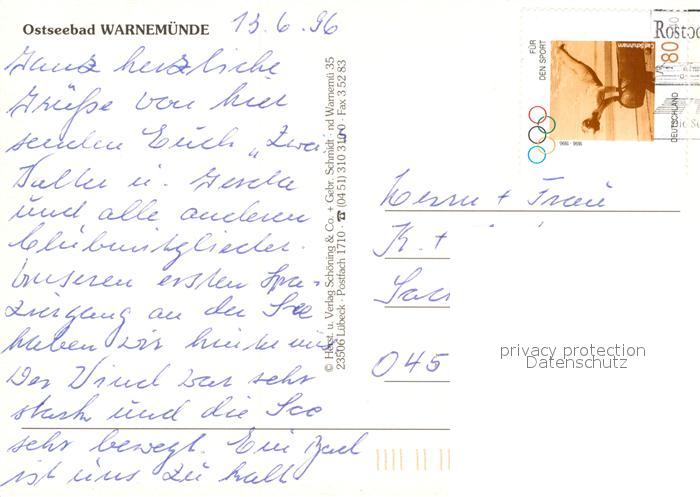 Ostseebad WARNEMÜNDE
13.6.96
Ganz herzliche
Grüße von hier
senden Euch „Zwei"
und alle anderen
Clubmitglieder.
Unseren ersten Spa-
ziergang an der See
haben wir hinter uns.
Der Wind war sehr
stark und die See
sehr bewegt. Ein Bad
ist uns zu kalt
© Herst. u. Verlag Schöning & Co. + Gebr. Schmidt
nd Warnemü 35
23506 Lübeck · Postfach 1710 · ☎ (04 51) 310 310 · Fax 3 52 83
FÜR
DEN SPORT
Carl Schuhmann
80
40
DEUTSCHLAND
1896 - 1996
Rostoc
Herrn + Frau
K. +
045
privacy protection
Datenschutz